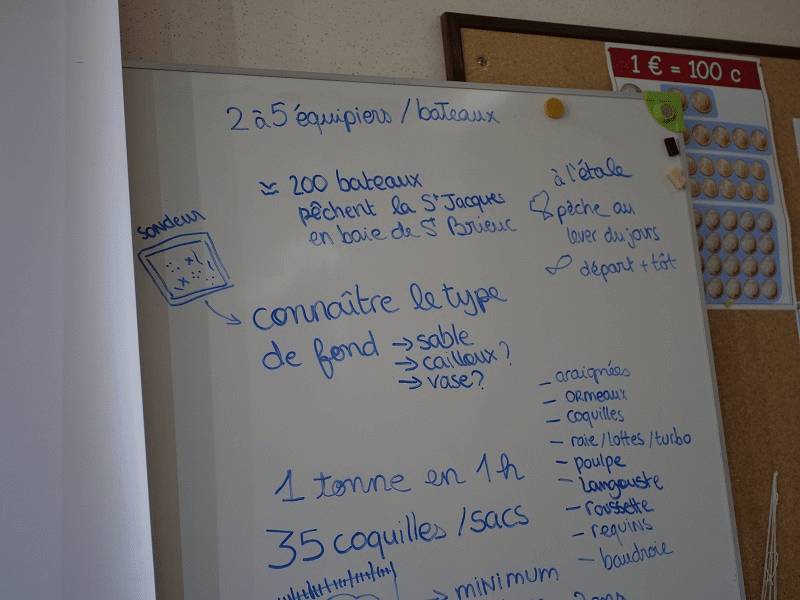 1 € = 100 c
2 à 5 équipiers / bateaux
≃ 200 bateaux
pêchent la St Jacques
en baie de St Brieuc
à l'étale
pêche au
lever du jours
départ + tôt
sondeur
connaître le type
de fond → sable
→ cailloux ?
→ vase ?
- araignées
- ormeaux
- coquilles
- raie / lottes / turbo
- poulpe
- langouste
- roussette
- requins
- baudroie
1 tonne en 1h
35 coquilles / sacs
→ minimum
2 ans